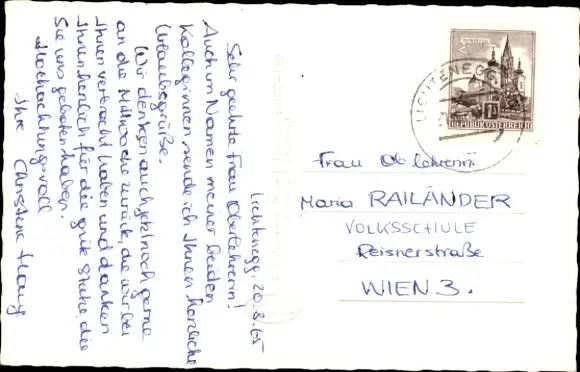 Lichtenegg, 20.8.65
Sehr geehrte Frau Oberlehrerin!
Auch im Namen meiner beiden
Kolleginnen sende ich Ihnen herzliche
Urlaubsgrüße.
Wir denken auch jetzt noch gerne
an die Mittwoche zurück, die wir bei
Ihnen verbracht haben und danken
Ihnen herzlich für die gute Stube, die
Sie uns geboten haben.
Hochachtungsvoll
Ihre Christine
LICHTENEGG
REPUBLIK ÖSTERREICH
Frau Oblehrerin
Maria RAILÄNDER
VOLKSSCHULE
Reisnerstraße
WIEN 3.